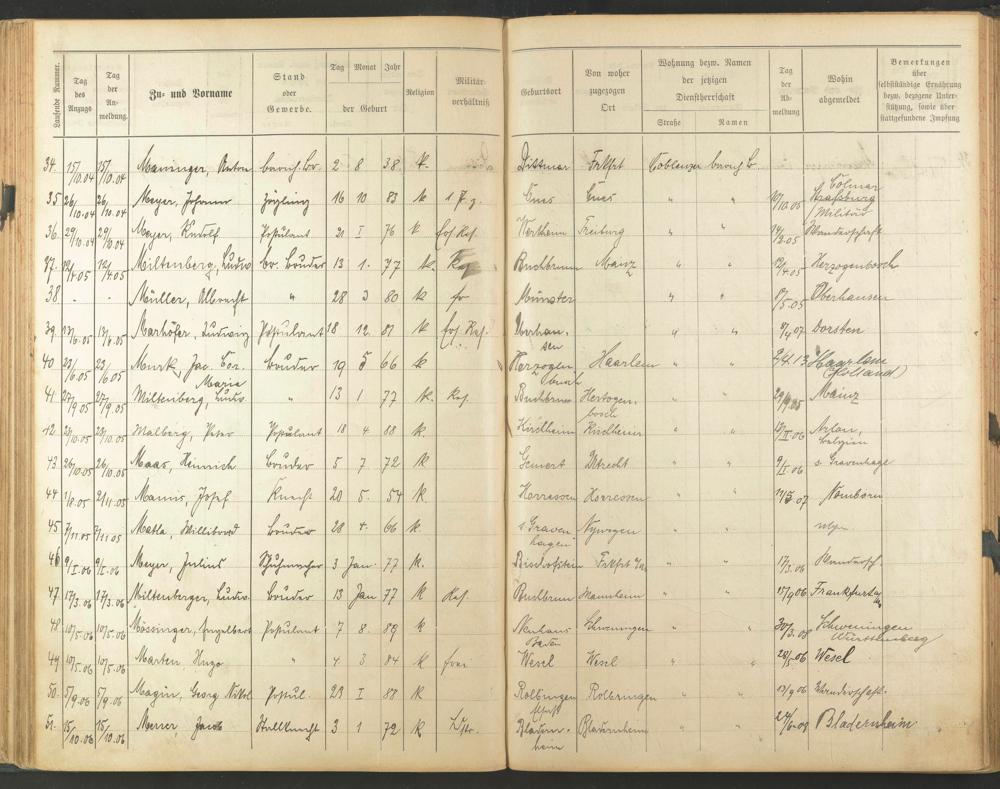 Laufende Nummer.
Tag des Anzugs
Tag der An-meldung.
Zu- und Vorname
Stand oder Gewerbe.
Tag Monat Jahr
der Geburt
Religion
Militär-verhältniß
Geburtsort
Von woher zugezogen Ort
Wohnung bezw. Namen der jetzigen Dienstherrschaft
Straße Namen
Tag der Ab-meldung
Wohin abgemeldet
Bemerkungen über selbstständige Ernährung bezw. bezogene Unter-stützung, sowie über stattgefundene Impfung
34. 15/10.04 15/10.04 Anton barmh. Br. 2 8 38. k. Frkfrt Coblenzer barmh. B.
Colmar
35 26/10.04 26/10.04 Meyer, Johann Zögling 16 10 83 k Cues Cues " " 10/10.05 Straßburg
Militär
36. 29/10.04 29/10.04 Meyer, Rudolf Postulant 21 I 76 k Wertheim Freiburg " " 14/3.05 Wanderschaft
37. 12/4.05 12/4.05 Miltenberg, Ludw. br. Bruder 13 1. 77 k. Buchbrunn Mainz " " 12/4.05 Herzogenbosch
38 - - Müller, Albrecht " 28 3 80 k Münster " " 5.05 Oberhausen
39. 13/6.05 13/6.05 Marhöfer, Ludwig Postulant 18 12. 81 k Ers. Res. Oberhau- " " 4.07 Dorsten
sen
40 23/6.05 23/6.05 Murk, Jac. Cor. Bruder 19 5 66 k Herzogen Haarlem " " 2/4.13 Haarlem
Maria busch (Holland)
41. 27/9.05 27/9.05 Miltenberg, Ludw. " 13 1 77 k. Res. Buchbrunn Hertogen- 29/9.05 Mainz
bosch
42. 23/10.05 23/10.05 Malberg, Peter Postulant 18 4 88 k. Kirchheim Kirchheim " " II.06 Arlon,
Belgien
43. 26/10.05 26/10.05 Maas, Heinrich Bruder 5 7. 72 k Gemert Utrecht " " 9/I.06 s Gravenhage
44 21/11.05 Manns, Josef Knecht 20 5. 54 k Horressen Horressen " " 5.07 Nomborn
45 7/11 05 7/11 05 Matla, Willibrord Bruder 28 4. 66 k. s Graven- Nymegen " "
hagen
46 9/I.06 9/I.06 Meyer, Julius Schuhmacher 3 Jan. 77. k. Bischofstein Frkfrt " " 17/3.06 Wandersch.
47. 17/3.06 17/3.06 Miltenberger, Ludw. Bruder 13 Jan 77 k Res. Buchbrunn Mannheim " " 15/9 06 Frankfurt a
48 10/5.06 10/5.06 Mössinger, Engelbert Postulant 7 8. 89 k Neuhaus Schwenningen " " 30/3.08 Schweningen
Baden Württemberg
49 10/5.06 10/5.06 Marten, Hugo " 4 3 84 k frei Wesel Wesel " " 28/5 06 Wesel
50. 5/9.06 5/9.06 Magin, Georg Nikol. Postul. 23 I 88 k Rolbingen Rolbringen " " 13/9 06 Wanderschaft.
51. 15/10.06 15/10.06 Jacob Stallknecht 3 1 72 k Bladern- Bladernheim " " 6.09 Bladernheim
heim